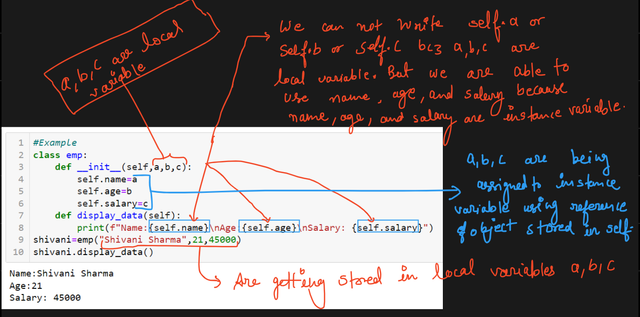 a,b,c are local
variable
We can not write self.a or
self.b or self.c bcz a,b,c are
local variable. But we are able to
use name, age, and salary because
name, age, and salary are instance variable.
1 #Example
2 class emp:
3 def __init__(self,a,b,c):
4 self.name=a
5 self.age=b
6 self.salary=c
7 def display_data(self):
8 print(f"Name:{self.name}\nAge:{self.age}\nSalary: {self.salary}")
9 shivani=emp("Shivani Sharma",21,45000)
10 shivani.display_data()
a,b,c are being
assigned to instance
variable using reference
of object stored in self.
Name:Shivani Sharma
Age:21
Salary: 45000
Are getting stored in local variables a,b,c